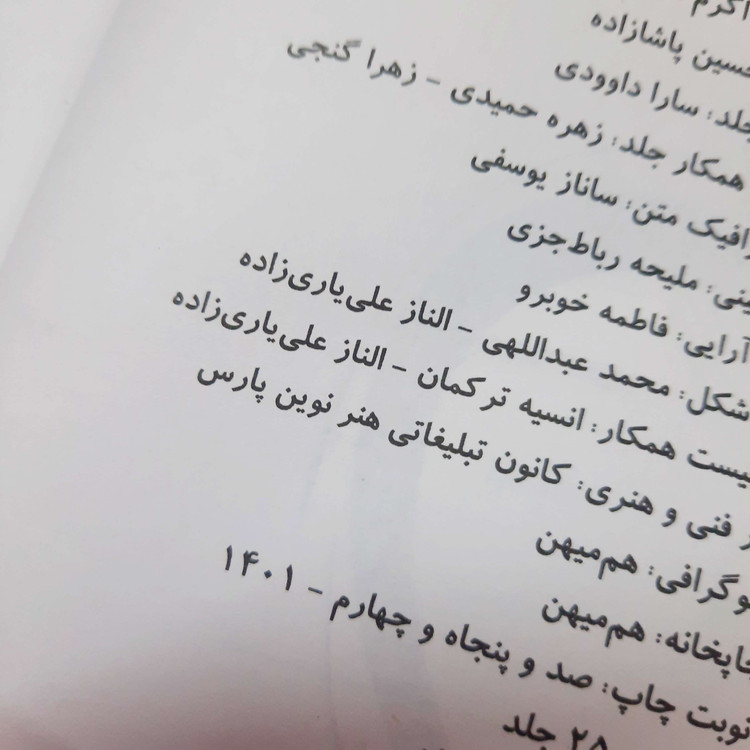 اکرم
حسین پاشازاده
جلد: سارا داوودی
همکار جلد: زهره حمیدی - زهرا گنجی
رافیک متن: ساناز یوسفی
ینی: ملیحه رباط‌جزی
آرایی: فاطمه خوبرو
شکل: محمد عبداللهی - الناز علی‌یاری‌زاده
یست همکار: انسیه ترکمان - الناز علی‌یاری‌زاده
ر فنی و هنری: کانون تبلیغاتی هنر نوین پارس
وگرافی: هم‌میهن
چاپخانه: هم‌میهن
نوبت چاپ: صد و پنجاه و چهارم - ۱۴۰۱
۲۵ جلد